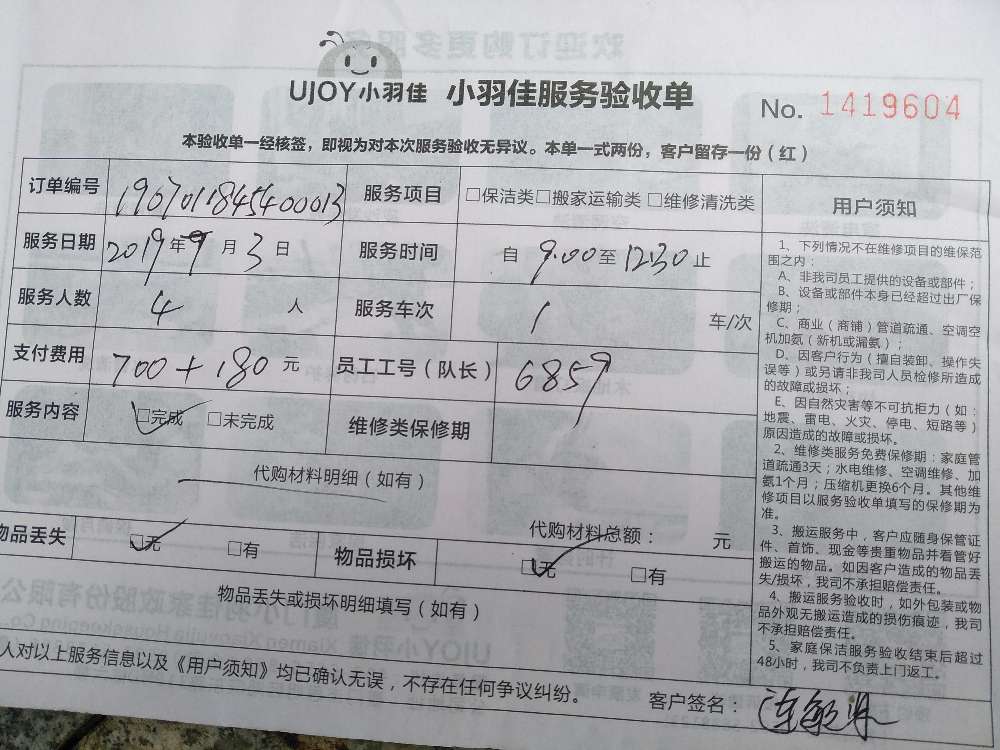 UJOY小羽佳 小羽佳服务验收单 No. 1419604
本验收单一经核签，即视为对本次服务验收无异议。本单一式两份，客户留存一份（红）
订单编号 1907011845400013 服务项目 □保洁类□搬家运输类 □维修清洗类
服务日期 2019年9月3日 服务时间 自 9.00 至 12:30 止
服务人数 4 人 服务车次 1 车/次
支付费用 700+180 元 员工工号（队长） 6859
服务内容 □完成 □未完成 维修类保修期
代购材料明细（如有）
代购材料总额： 元
物品丢失 □无 □有 物品损坏 □无 □有
物品丢失或损坏明细填写（如有）
人对以上服务信息以及《用户须知》均已确认无误，不存在任何争议纠纷。 客户签名：
用户须知
1、下列情况不在维修项目的维保范
围之内：
A、非我司员工提供的设备或部件；
B、设备或部件本身已经超过出厂保
修期；
C、商业（商铺）管道疏通、空调空
机加氨（新机或漏氨）；
D、因客户行为（擅自装卸、操作失
误等）或另请非我司人员检修所造成
的故障或损坏；
E、因自然灾害等不可抗拒力（如：
地震、雷电、火灾、停电、短路等）
原因造成的故障或损坏。
2、维修类服务免费保修期：家庭管
道疏通3天；水电维修、空调维修、加
氨1个月；压缩机更换6个月。其他维
修项目以服务验收单填写的保修期为
准。
3、搬运服务中，客户应随身保管证
件、首饰、现金等贵重物品并看管好
搬运的物品。如因客户造成的物品丢
失/损坏，我司不承担赔偿责任。
4、搬运服务验收时，如外包装或物
品外观无搬运造成的损伤痕迹，我司
不承担赔偿责任。
5、家庭保洁服务验收结束后超过
48小时，我司不负责上门返工。